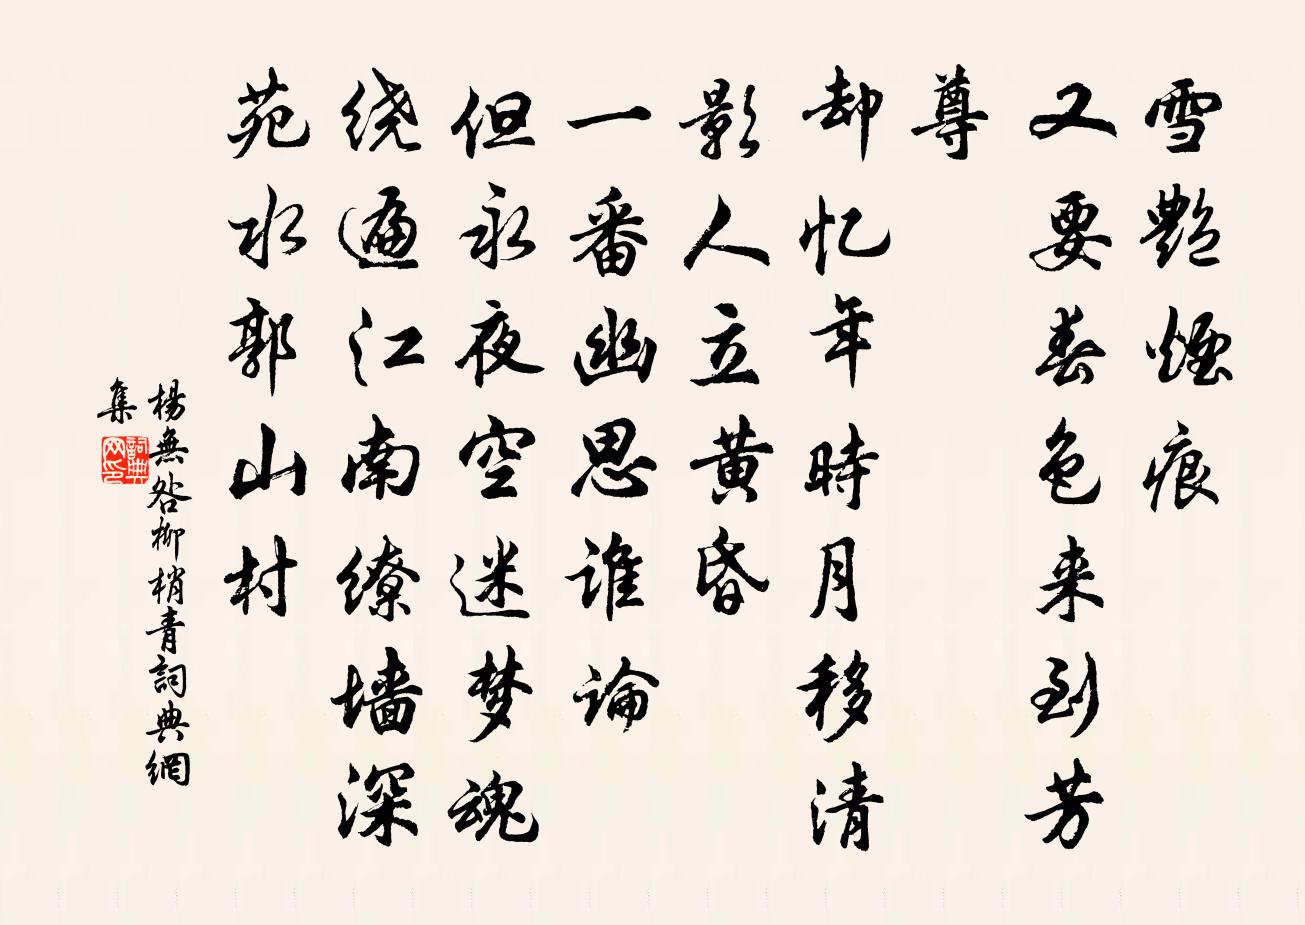 雪艷煙痕
又要春色来到芳
尊
却忆年時月移清
影人立黄昏
一番幽思谁論
但永夜空迷梦魂
绕遍江南缭墙深
苑水郭山村
楊無咎柳梢青詞典網
集
詞典网印